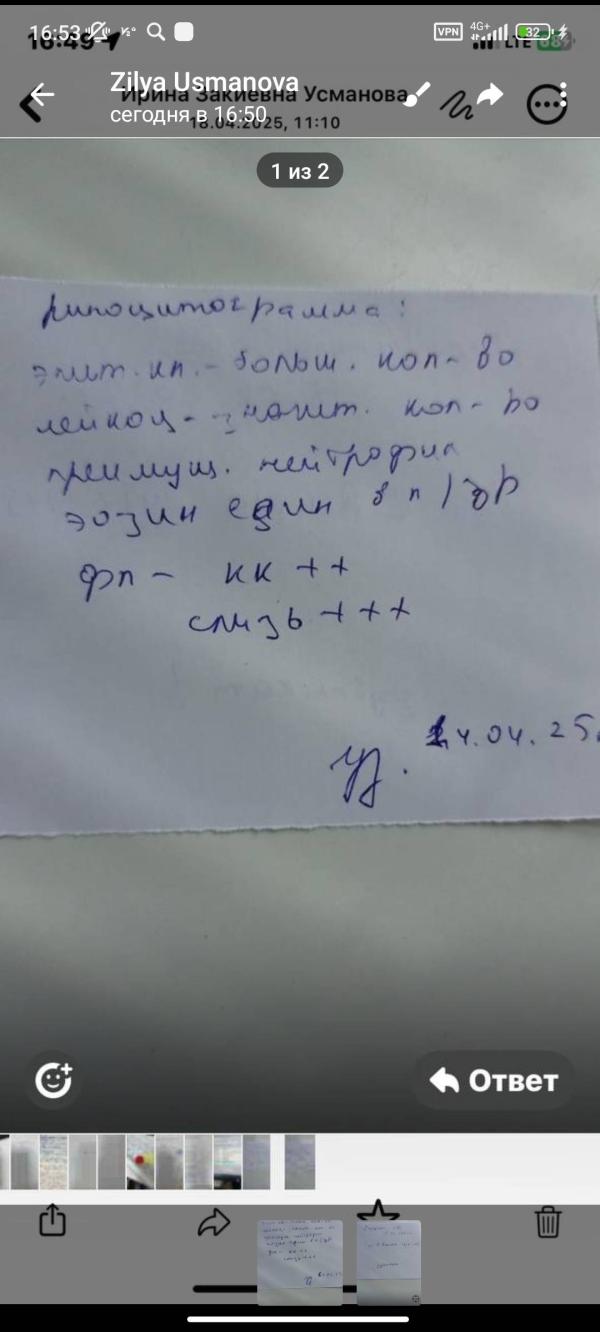 16:53
VPN 4G+ 32
16:49
LTE 68
Zilya Usmanova
Ирина Закиевна Усманова
сегодня в 16:50
18.04.2025, 11:10
1 из 2
риноцитограмма:
эпит. кл. - больш. кол-во
лейкоц - значит. кол-во
преимущ. нейтрофил
эозин един в п/зр
фл - кк ++
слизь +++
24.04.25
Ответ